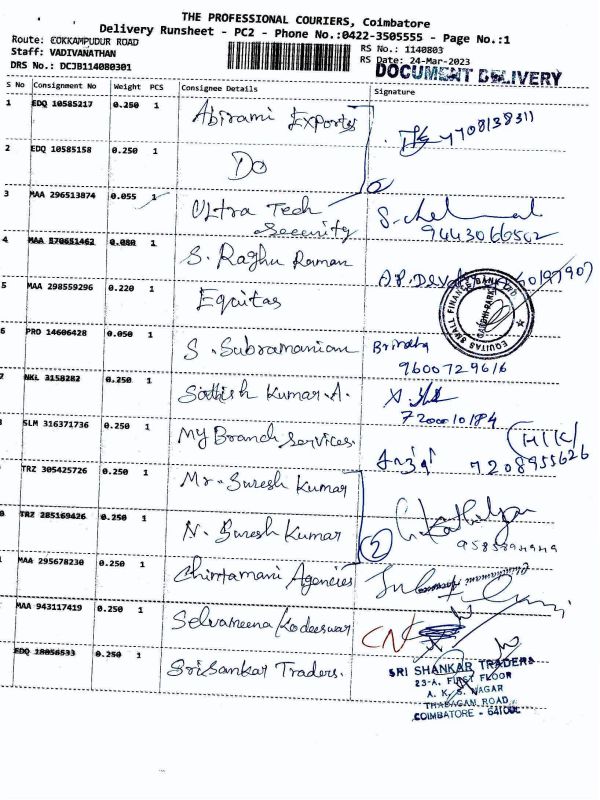 THE PROFESSIONAL COURIERS, Coimbatore
Delivery Runsheet - PC2 - Phone No.:0422-3505555 - Page No.:1
Route: COKKAMPUDUR ROAD
Staff: VADIVANATHAN
DRS No.: DCJB114080301
RS No.: 1140803
RS Date: 24-Mar-2023
DOCUMENT DELIVERY
S No Consignment No Weight PCS Consignee Details Signature
1 EDQ 10585217 0.250 1 Abirami Exportes 7708138311
2 EDQ 10585158 0.250 1 Do
3 MAA 296513874 0.055 1 Ultra Tech Security
9443066502
4 MAA 570651462 0.080 1 S. Raghu Raman
5 MAA 298559296 0.220 1 Equitas
EQUITAS SMALL FINANCE BANK LTD
6 PRO 14606428 0.050 1 S. Subramanian Brindha
9600729616
7 NKL 3158282 0.250 1 Sathish Kumar.A.
SLM 316371736 0.250 1 My Branch Services
7208955626
TRZ 305425726 0.250 1 Mr. Suresh Kumar
TRZ 285169426 0.250 1 N. Suresh Kumar 2
MAA 295678230 0.250 1 Chintamani Agencies
MAA 943117419 0.250 1 Selvameena Kodeeswar
CN
EDQ 18056533 0.250 1 Sri Sankar Traders.
SRI SHANKAR TRADERS
23-A, FIRST FLOOR
A. K. S. NAGAR
THADAGAM ROAD
COIMBATORE -